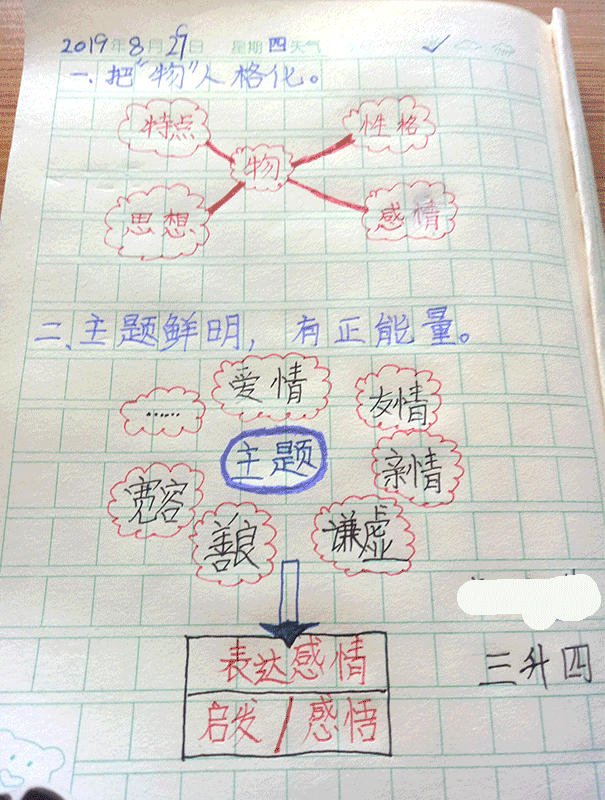 2019年8月29日 星期四天气
一、把“物”人格化。
特点
性格
物
思想
感情
二、主题鲜明，有正能量。
爱情
友情
……
主题
亲情
宽容
善良
谦虚
表达感情
三升四
启发/感悟